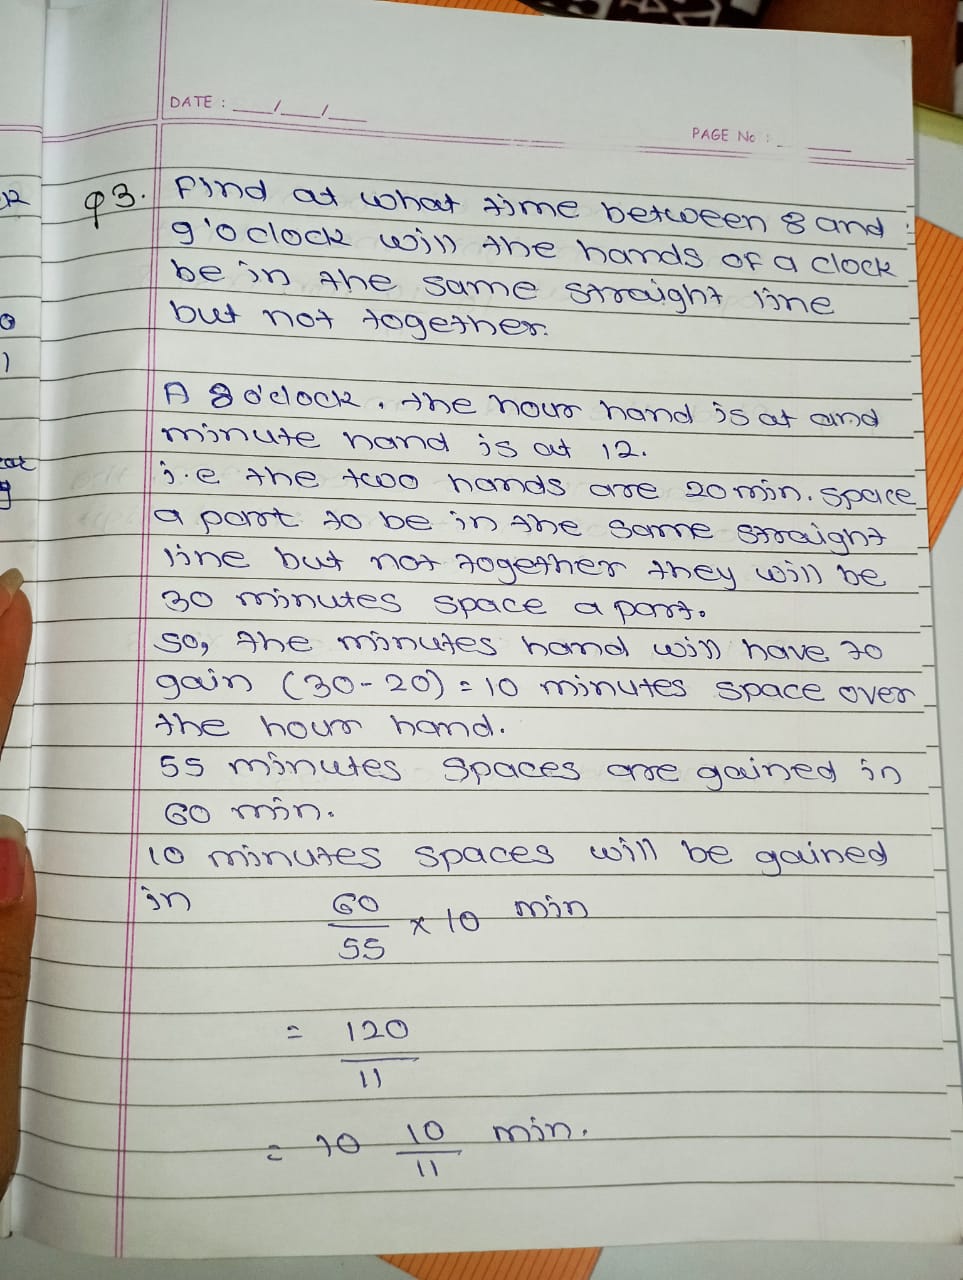 DATE : __/__/__
PAGE No :
Q3. Find at what time between 8 and
9'o clock will the hands of a clock
be in the same straight line
but not together.
A 8 o'clock, the hour hand is at and
minute hand is at 12.
i.e the two hands are 20 min. space
a part to be in the same straight
line but not together they will be
30 minutes space a part.
so, the minutes hand will have to
gain (30-20) = 10 minutes space over
the hour hand.
55 minutes spaces are gained in
60 min.
10 minutes spaces will be gained
in 60/55 x 10 min
= 120/11
= 10 10/11 min.